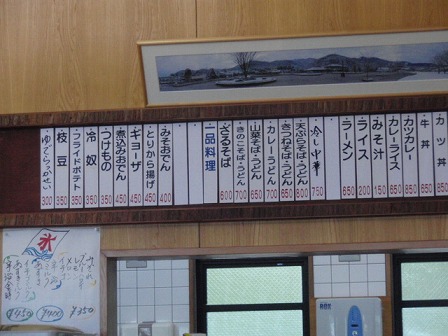 カツ丼
牛丼 650
カツカレー 850
カレーライス 650
みそ汁 150
ライス 200
ラーメン 650
冷し中華 750
天ぷらそば・うどん 800
きつねそば・うどん 650
カレーうどん 700
山菜そば・うどん 700
きのこそば・うどん 700
ざるそば 600
一品料理
みそおでん 400
とりから揚げ 450
ギョーザ 450
煮込みおでん 400
つけもの 350
冷奴 350
フライドポテト 350
枝豆 350
ゆでらっかせい 300
氷
¥450 ¥400 ¥350